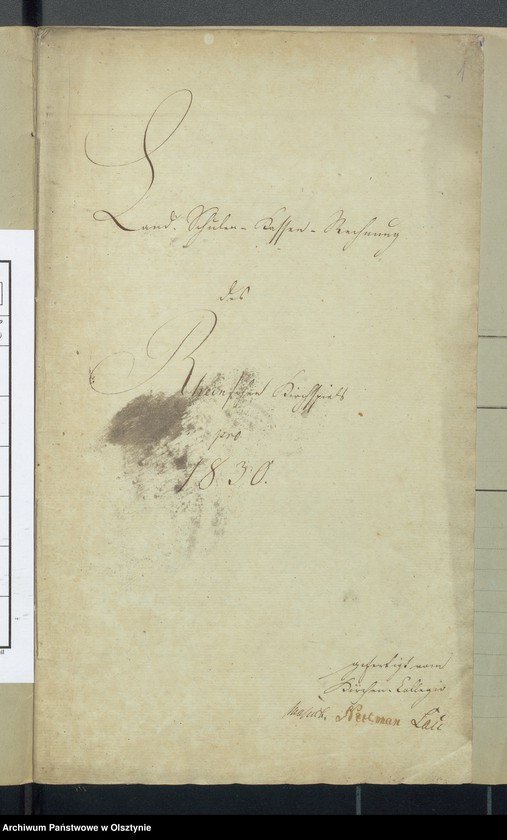 1
Land-Schulen-Kassen-Rechnung
des
Rheinschen Kirchspiels
pro
1830.
gefertigt vom
Kirchen-Collegio
Archiwum Państwowe w Olsztynie